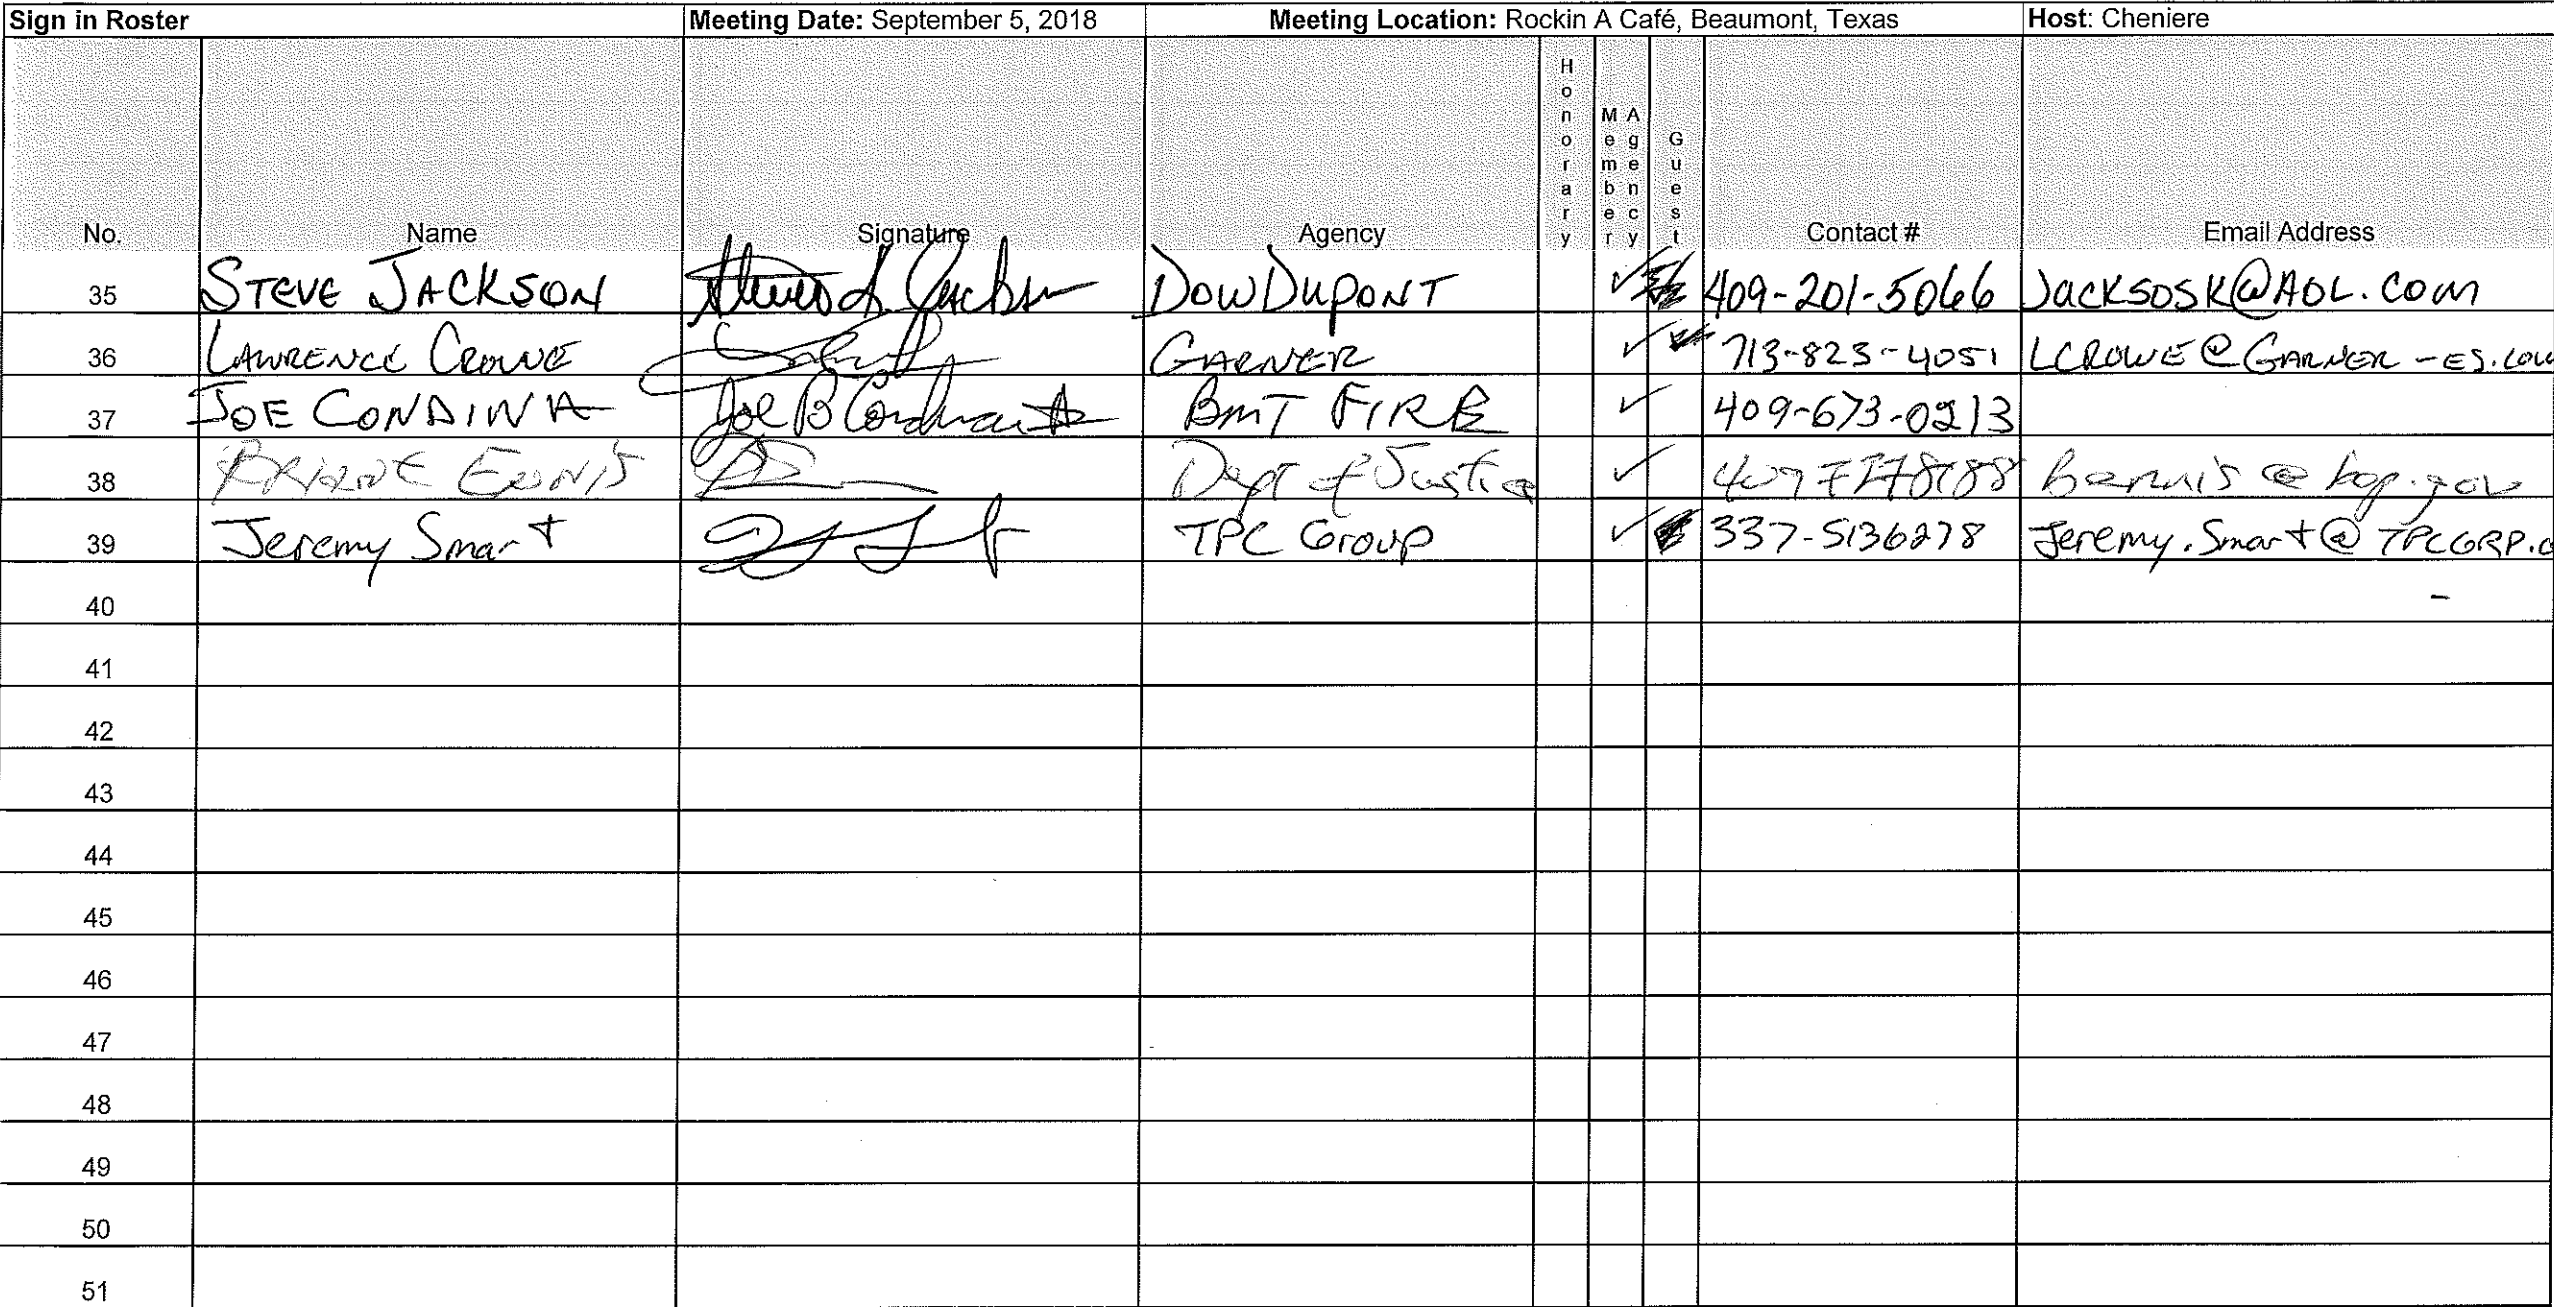 Sign in Roster Meeting Date: September 5, 2018 Meeting Location: Rockin A Café, Beaumont, Texas Host: Cheniere
No. Name Signature Agency Honorary Member Agency Guest Contact # Email Address
35 STEVE JACKSON DOWDUPONT ✓ 409-201-5066 JACKSOSK@AOL.COM
36 LAWRENCE CROWE GARNER ✓ 713-823-4051 LCROWE@GARNER-ES.COM
37 JOE CONDINA Joe B Condina BMT FIRE ✓ 409-673-0213
38 Dept of Justice ✓ @bop.gov
39 Jeremy Smart TPC Group ✓ 337-5136278 Jeremy.Smart@TPCGRP.c
40
41
42
43
44
45
46
47
48
49
50
51